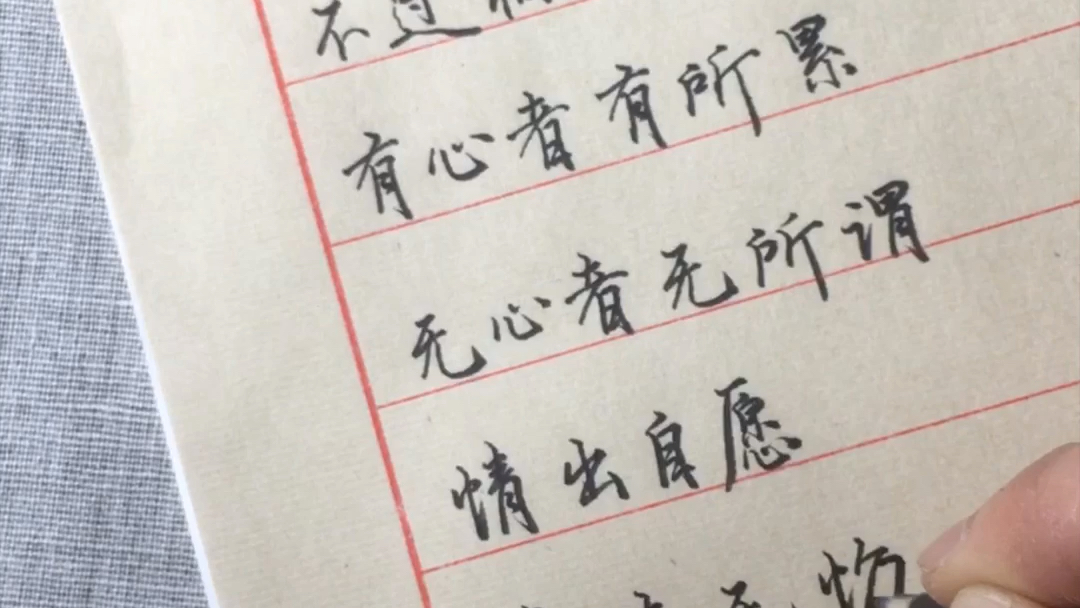 不过
有心者有所累
无心者无所谓
情出自愿